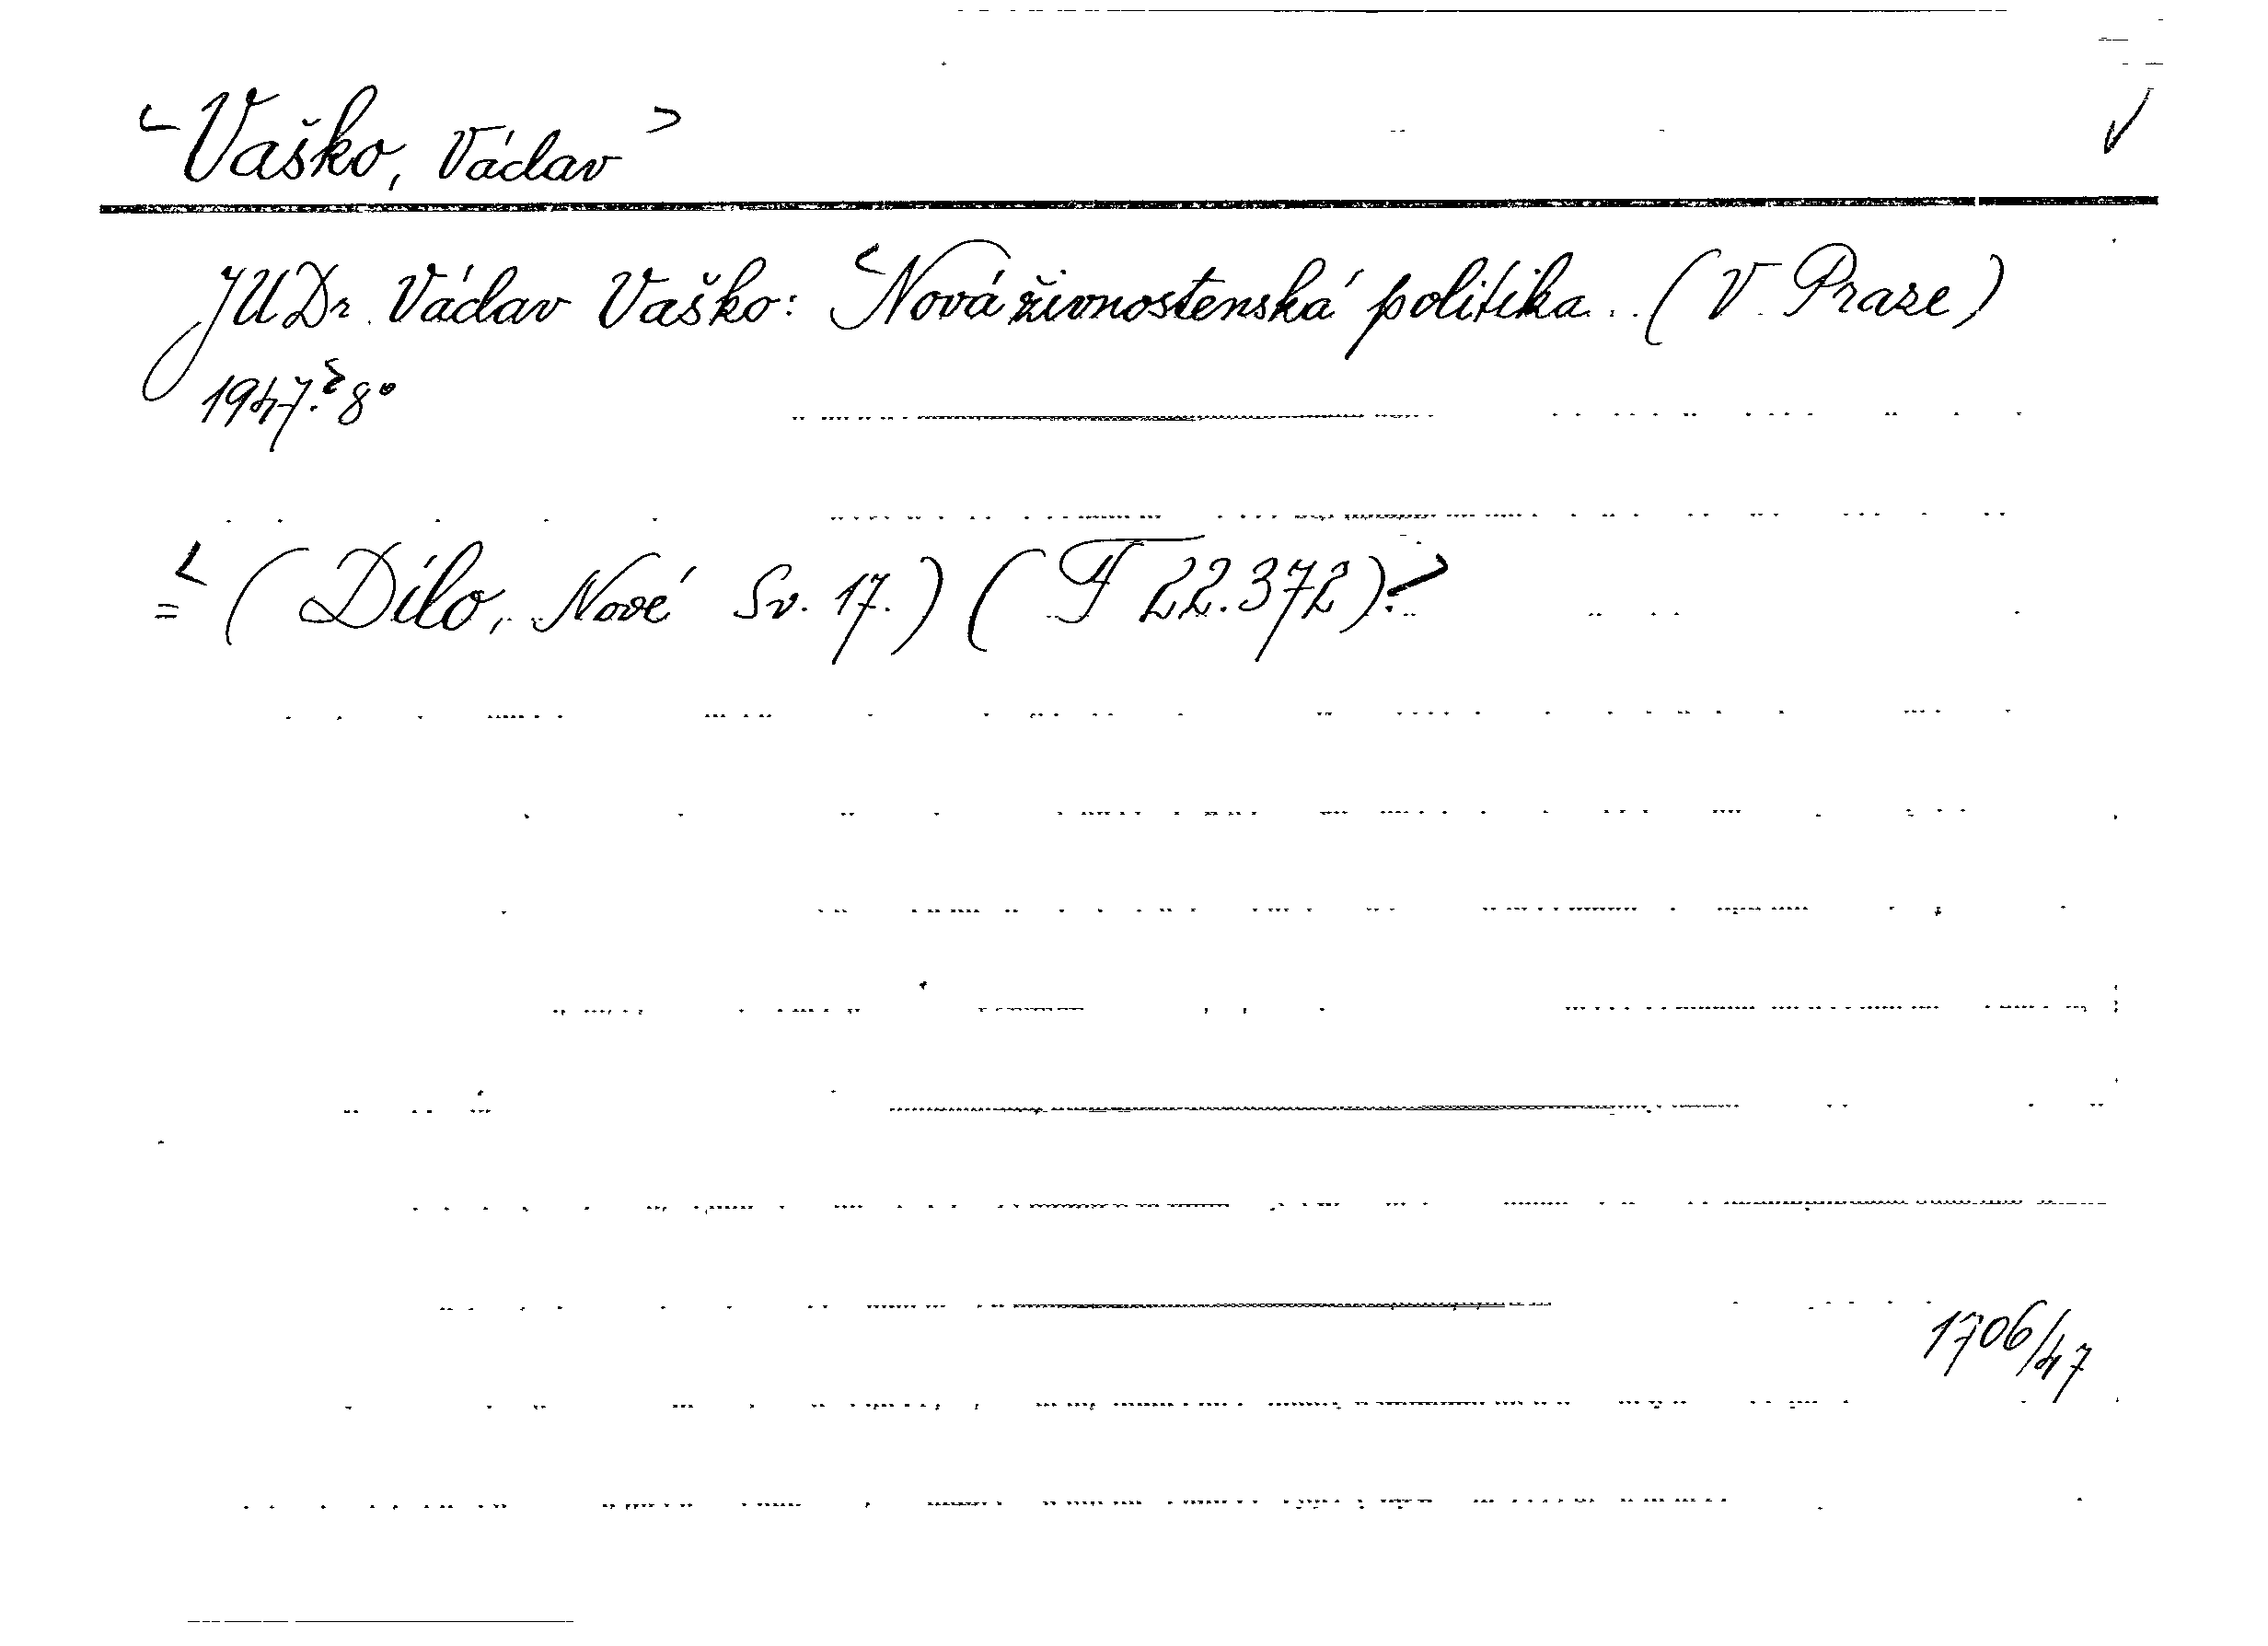 <Vaško, Václav>
JUDr. Václav Vaško: <Nová živnostenská politika... (V Praze)
1947.> 8°
=<(Dílo, Nové Sv. 17.) (F 22.372).>
1706/47